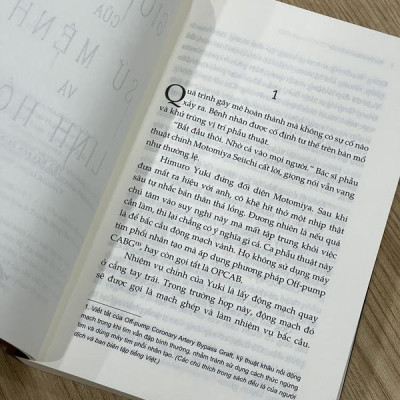 GIỚI
CỦA
SỨ MỆNH
VÀ
1
Quá trình gây mê hoàn thành mà không có sự cố nào
xảy ra. Bệnh nhân được cố định tư thế trên bàn mổ
và khử trùng vị trí phẫu thuật.
"Bắt đầu thôi. Nhờ cả vào mọi người." Bác sĩ phẫu
thuật chính Motomiya Seiichi cất lời, giọng nói vẫn vang
như thường lệ.
Himuro Yuki đứng đối diện Motomiya. Sau khi
đưa mắt ra hiệu với anh, cô khẽ hít thở một nhịp thật
sâu tự nhắc bản thân thả lỏng. Đương nhiên là nếu quá
chú tâm vào suy nghĩ này mà mất tập trung khỏi việc
cần làm, thì lại chẳng có ý nghĩa gì cả. Ca phẫu thuật này
là để bắc cầu động mạch vành. Họ không sử dụng máy
tim phổi nhân tạo mà áp dụng phương pháp Off-pump
CABG⁽¹⁾ hay còn gọi tắt là OPCAB.
Nhiệm vụ chính của Yuki là lấy động mạch quay
ở cẳng tay trái. Trong trường hợp này, động mạch đó
sẽ được gọi là mạch ghép và làm nhiệm vụ bắc cầu.
1. Viết tắt của Off-pump Coronary Artery Bypass Graft, kỹ thuật khâu nối động
mạch trong khi tim vẫn đập bình thường, nhằm tránh sử dụng cách thức ngừng
tim và dùng máy tim phổi nhân tạo. (Các chú thích trong sách đều là của người
dịch và ban biên tập tiếng Việt.)